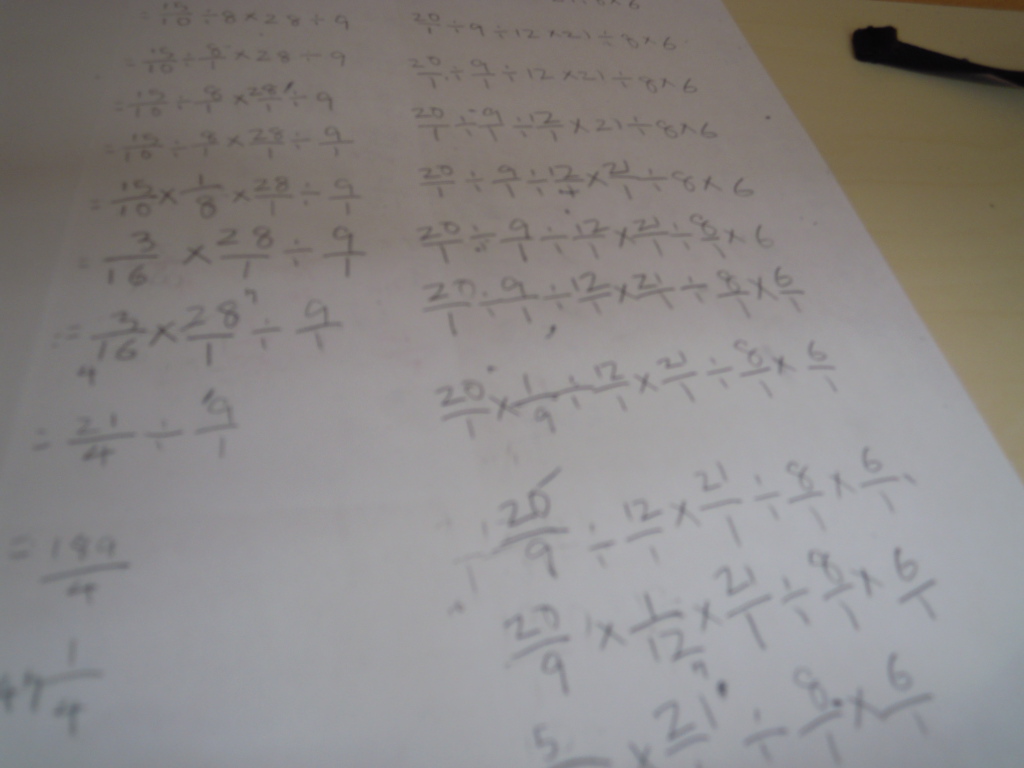 = 15/10 ÷ 8 × 28 ÷ 9
= 15/10 ÷ 8/1 × 28 ÷ 9
= 15/10 ÷ 8/1 × 28/1 ÷ 9
= 15/10 ÷ 8/1 × 28/1 ÷ 9/1
= 15/10 × 1/8 × 28/1 ÷ 9/1
= 3/16 × 28/1 ÷ 9/1
= 3/16 × 28/1 ÷ 9/1
7
4
= 21/4 ÷ 9/1
= 189/4
47 1/4
× 6
20/1 ÷ 9 ÷ 12 × 21 ÷ 8 × 6
20/1 ÷ 9/1 ÷ 12 × 21 ÷ 8 × 6
20/1 ÷ 9/1 ÷ 12/1 × 21 ÷ 8 × 6
20/1 ÷ 9/1 ÷ 12/1 × 21/1 ÷ 8 × 6
20/1 ÷ 9/1 ÷ 12/1 × 21/1 ÷ 8/1 × 6
20/1 ÷ 9/1 ÷ 12/1 × 21/1 ÷ 8/1 × 6/1
20/1 × 1/9 ÷ 12/1 × 21/1 ÷ 8/1 × 6/1
20/9 ÷ 12/1 × 21/1 ÷ 8/1 × 6/1
20/9 × 1/12 × 21/1 ÷ 8/1 × 6/1
7
5 × 21 ÷ 8/1 × 6/1